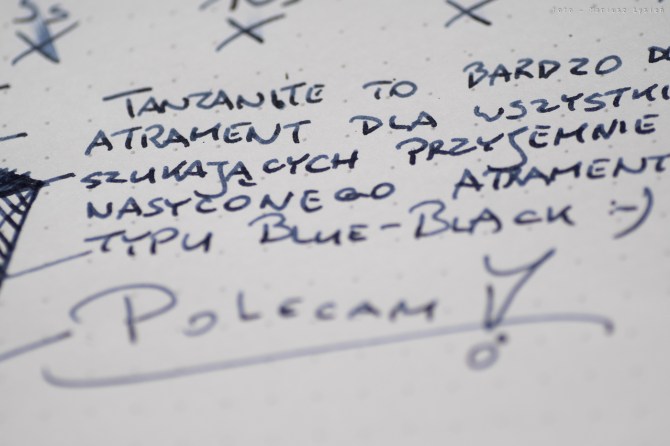 5s 10s
TANZANITE TO BARDZO
ATRAMENT DLA WSZYSTKI
SZUKAJĄCYCH PRZYJEMNIE
NASYCONEGO ATRAMENT
TYPU BLUE-BLACK :-)
POLECAM!